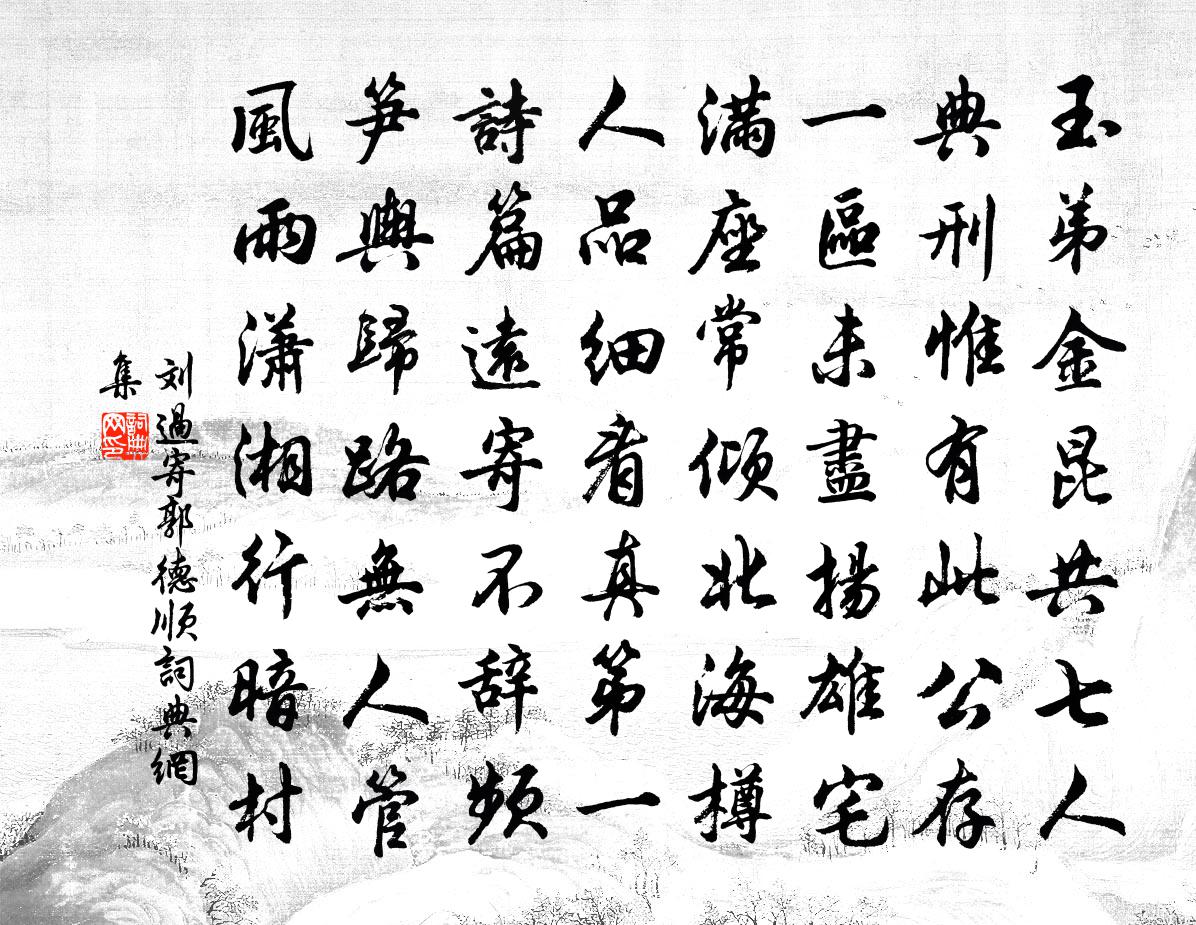 玉弟金昆共七人
典刑惟有此公存
一區未盡揚雄宅
滿座常傾北海樽
人品細看真第一
詩篇遠寄不辞頻
笋輿歸路無人管
風雨瀟湘行暗村
刘過寄郭德順詞典網
集
詞典网印